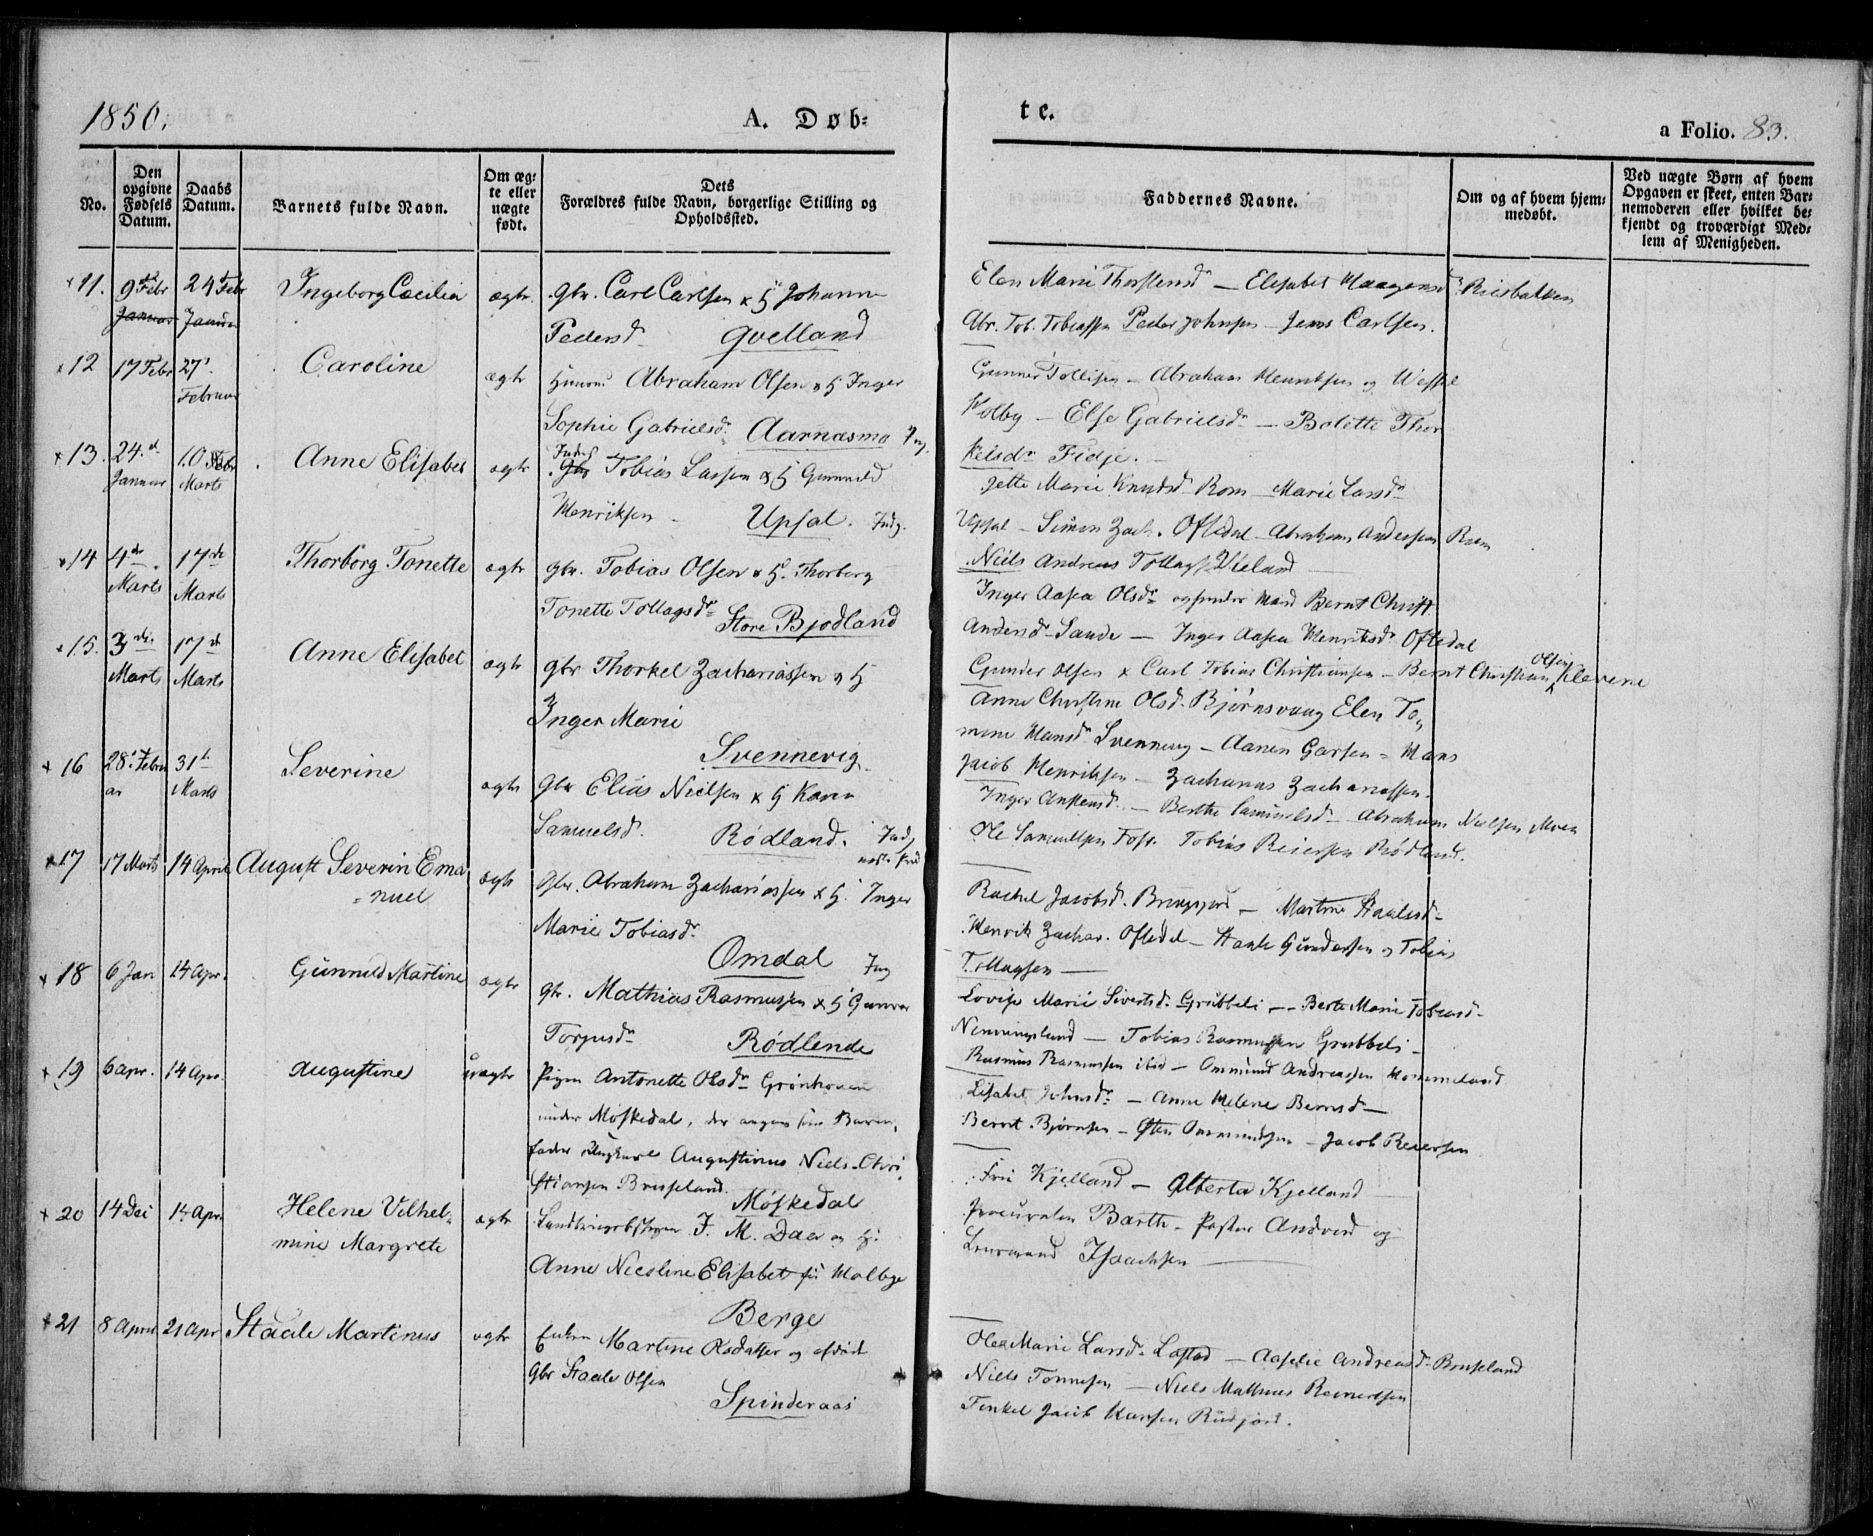 1850.
A. Døb-
te.
a Folio. 83.
No.
Den opgivne Fødsels Datum.
Daabs Datum.
Barnets fulde Navn.
Om ægte eller uægte født.
Dets Forældres fulde Navn, borgerlige Stilling og Opholdssted.
Faddernes Navne.
Om og af hvem hjemmedøbt.
Ved uægte Børn af hvem Opgaven er skeet, enten Barnemoderen eller hvilket bekjendt og troværdigt Medlem af Menigheden.
11. 9 Febr Januar 24 Febr Januar Ingeborg Cæcilia ægte Gbr. Carl Carlsen & H Johanne
Pedersd. Qvelland
Elen Marie Thorstensd — Elisabet Haagensd Riisbakken
Abr. Tob. Tobiassen Peder Johnsen — Jens Carlsen.
12 17 Febr 27 Februar Caroline ægte Abraham Olsen & H Inger
Sophie Gabrielsd. Aarnæsmo
Gunner Tollisen — Abraham Henriksen og Wessel
Holby — Else Gabrielsd — Bolette Thor
kelsd. Fidje.
13. 24. Januar 10 Marts Anne Elisabet ægte Tobias Lassen & H Gunnild
Henriksen Upsal. Indg.
Jette Marie Knudsd Rom — Marie Larsd
Upsal — Simon Zach. Oftedal — Abraham Anderssen Rom
Niels Andreas Tollagsen Vieland
14 4de Marts 17de Marts Thorborg Tonette ægte Gbr. Tobias Olsen & H. Thorborg
Tonette Tollagsdr Store Bjodland
Inger Aasea Olsdr Bernt Christ
Andersd. Sande — Inger Aasea Henriksd. Oftedal
Gunder Olsen & Carl Tobias Christiansen — Bernt Christian Olsen Klevene
15. 3die Marts 17de Marts Anne Elisabet ægte Gbr Thorkel Zachariassen & H
Inger Marie
Svennevig
Anne Christine Olsd. Bjørnsvaag Elen To
mine Hansd. Svennevig — Aanen Garsen — Hans
Jacob Henriksen — Zacharias Zachariassen.
16 28. Februar 31 Marts Severine ægte Gbr Elias Nielsen & H Karen
Samuelsd. Rødland. Indg
Inger Anstensd. — Berthe Samuelsd — Abraham Nielsen Moen
Ole Samuelsen Foss. Tobias Reiersen Rødland.
17 17 Marts 14 April August Severin Ema
=nuel ægte Gbr. Abraham Zachariassen & H. Inger
Marie Tobiasd.
Omdal
Rachel Jacobsd. — Martine Staalesd —
Henrik Zachar. Oftedal — Staale Gundersen og Tobias
Tollagsen —
18 6 Jan 14 Apr. Gunnild Martine ægte Gbr. Mathias Rasmussen & H Gunvor
Torjusdr Rødlende
Lovise Marie Sivertsd. Grubbeli — Berte Marie Tobiasd —
Nenningsland — Tobias Rasmussen Grubbeli —
Rasmus Rasmussen ibid — Ommund Andreassen Hommeland
19 6 apr. 14 Apr. Augustine uægte Pigen Antonette Olsdr Grønhoven
under Møskedal, der angav som Barne
fader Ungkarl Augustinus Niels Chri
stiansen Brisseland. Møskedal
Lisabet Johnsdr — Anne Helene Berntsd —
Bernt Bjørnsen — Østen Ommundsen — Jacob Reiersen
20 14 Dec 14 Apr. Helene Vilhel-
mine Margrete ægte J. M. Daer og H.
Anne Nicoline Elisabet Holbye
Berge
Fru Kjelland — Alberta Kjelland
Procurator Barth — Pastor Andved og
Lensmand Isachsen
21 8 April 21 Apr Staale Martinus ægte Enken Martine Olsdatter og afdøde
Gbr Staale Olsen
Spinderaas
Olea Marie Larsd. Løstad — Aaselie Andreasd Brusland
Niels Tønnesen — Niels Mathias Reinertsen
Tenkel Jacob Hansen Rudjord.